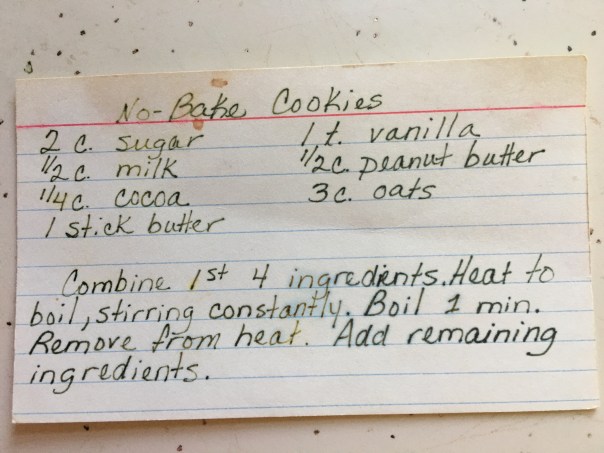 No-Bake Cookies
2 c. sugar
1/2 c. milk
1/4 c. cocoa
1 stick butter
1 t. vanilla
1/2 c. peanut butter
3 c. oats
Combine 1st 4 ingredients. Heat to
boil, stirring constantly. Boil 1 min.
Remove from heat. Add remaining
ingredients.